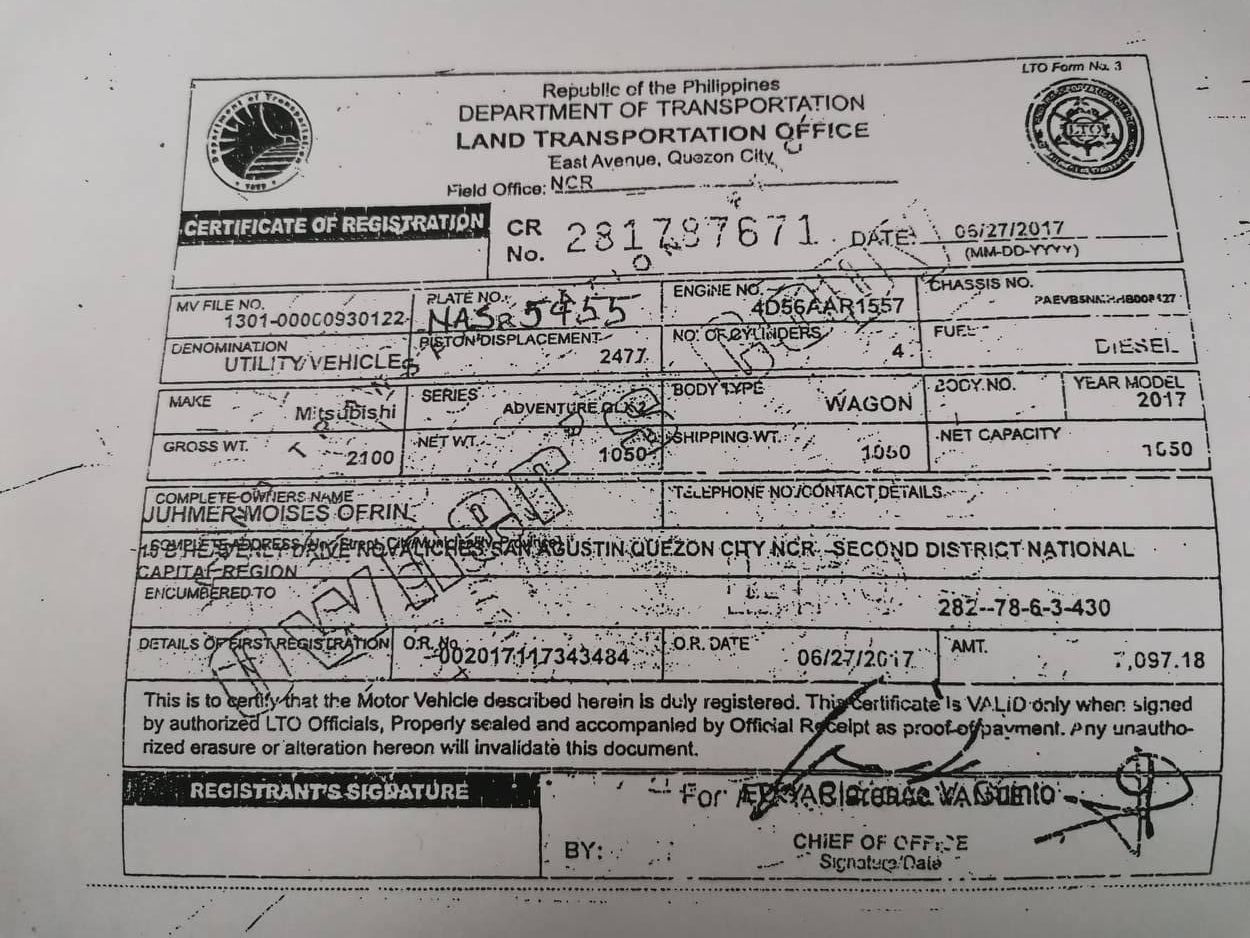 LTO Form No. 3
Republic of the Philippines
DEPARTMENT OF TRANSPORTATION
LAND TRANSPORTATION OFFICE
East Avenue, Quezon City
Field Office: NCR
CERTIFICATE OF REGISTRATION
CR No. 281787671 DATE: 06/27/2017
(MM-DD-YYYY)
MV FILE NO. PLATE NO. ENGINE NO. CHASSIS NO.
1301-00000930122 5455 4D56AAR1557
DENOMINATION PISTON DISPLACEMENT NO. OF CYLINDERS FUEL
UTILITY VEHICLE 2477 4 DIESEL
MAKE SERIES BODY TYPE BODY NO. YEAR MODEL
Mitsubishi ADVENTURE WAGON 2017
GROSS WT. NET WT. SHIPPING WT. NET CAPACITY
2100 1050 1050 1050
COMPLETE OWNERS NAME TELEPHONE NO./CONTACT DETAILS
JUHMER MOISES OFRIN
DRIVE NOVALICHES SAN AGUSTIN QUEZON CITY NCR SECOND DISTRICT NATIONAL
CAPITAL REGION
ENCUMBERED TO
282--78-6-3-430
DETAILS OF FIRST REGISTRATION O.R. No. O.R. DATE AMT.
002017117343484 06/27/2017 7,097.18
This is to certify that the Motor Vehicle described herein is duly registered. This certificate is VALID only when signed
by authorized LTO Officials, Properly sealed and accompanied by Official Receipt as proof of payment. Any unautho-
rized erasure or alteration hereon will invalidate this document.
REGISTRANT'S SIGNATURE
For
BY:
CHIEF OF OFFICE
Signature/Date